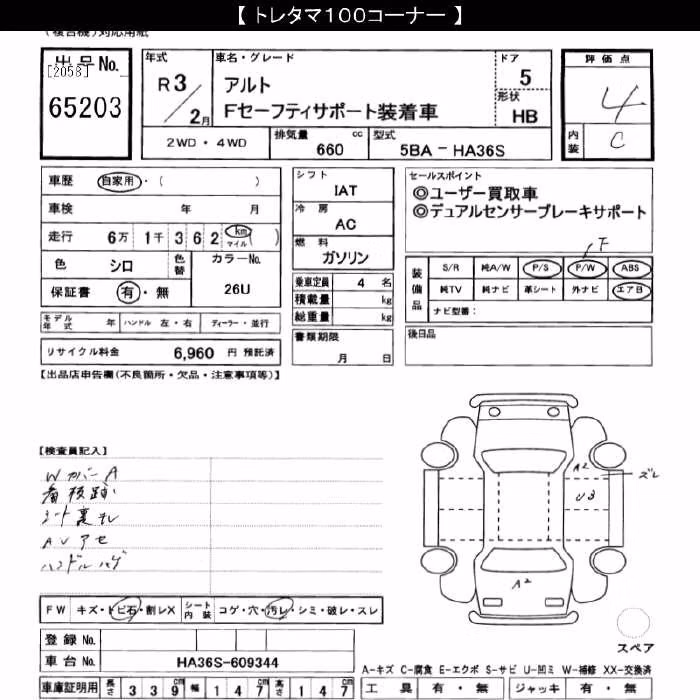 【 トレタマ１００コーナー 】
(複合機)対応用紙
出品No.
[2058]
65203
年式
R 3 / 2月
車名・グレード
アルト
Fセーフティサポート装着車
ドア
5
形状
HB
評価点
4
内装
C
2WD・4WD
排気量 660 cc
型式 5BA - HA36S
車歴 自家用・( )
車検 年 月
走行 6万 1千 3 6 2 km マイル ( )
色 シロ 色替
カラーNo.
26U
保証書 有・無
モデル年式 年 ハンドル 左・右 ディーラー・並行
リサイクル料金 6,960 円 預託済
シフト
IAT
冷房
AC
燃料
ガソリン
乗車定員 4 名
積載量 kg
総重量 kg
書類期限
月 日
セールスポイント
◎ユーザー買取車
◎デュアルセンサーブレーキサポート
F
装備品
S/R 純A/W P/S P/W ABS
純TV 純ナビ 革シート 外ナビ エアB
ナビ型番：
後日品
【出品店申告欄(不良箇所・欠品・注意事項等)】
【検査員記入】
Wカバー A
シート裏
AVアセ
ハンドルハゲ
A2
ズレ
U3
A2
FW キズ・トビ石・割レX
シート内装 コゲ・穴・汚レ・シミ・破レ・スレ
登録No.
車台No. HA36S-609344
スペア
A-キズ C-腐食 E-エクボ S-サビ U-凹ミ W-補修 XX-交換済
車庫証明用 長さ 3 3 9cm 幅 1 4 7cm 高さ 1 4 7cm
工具 有・無 ジャッキ 有・無